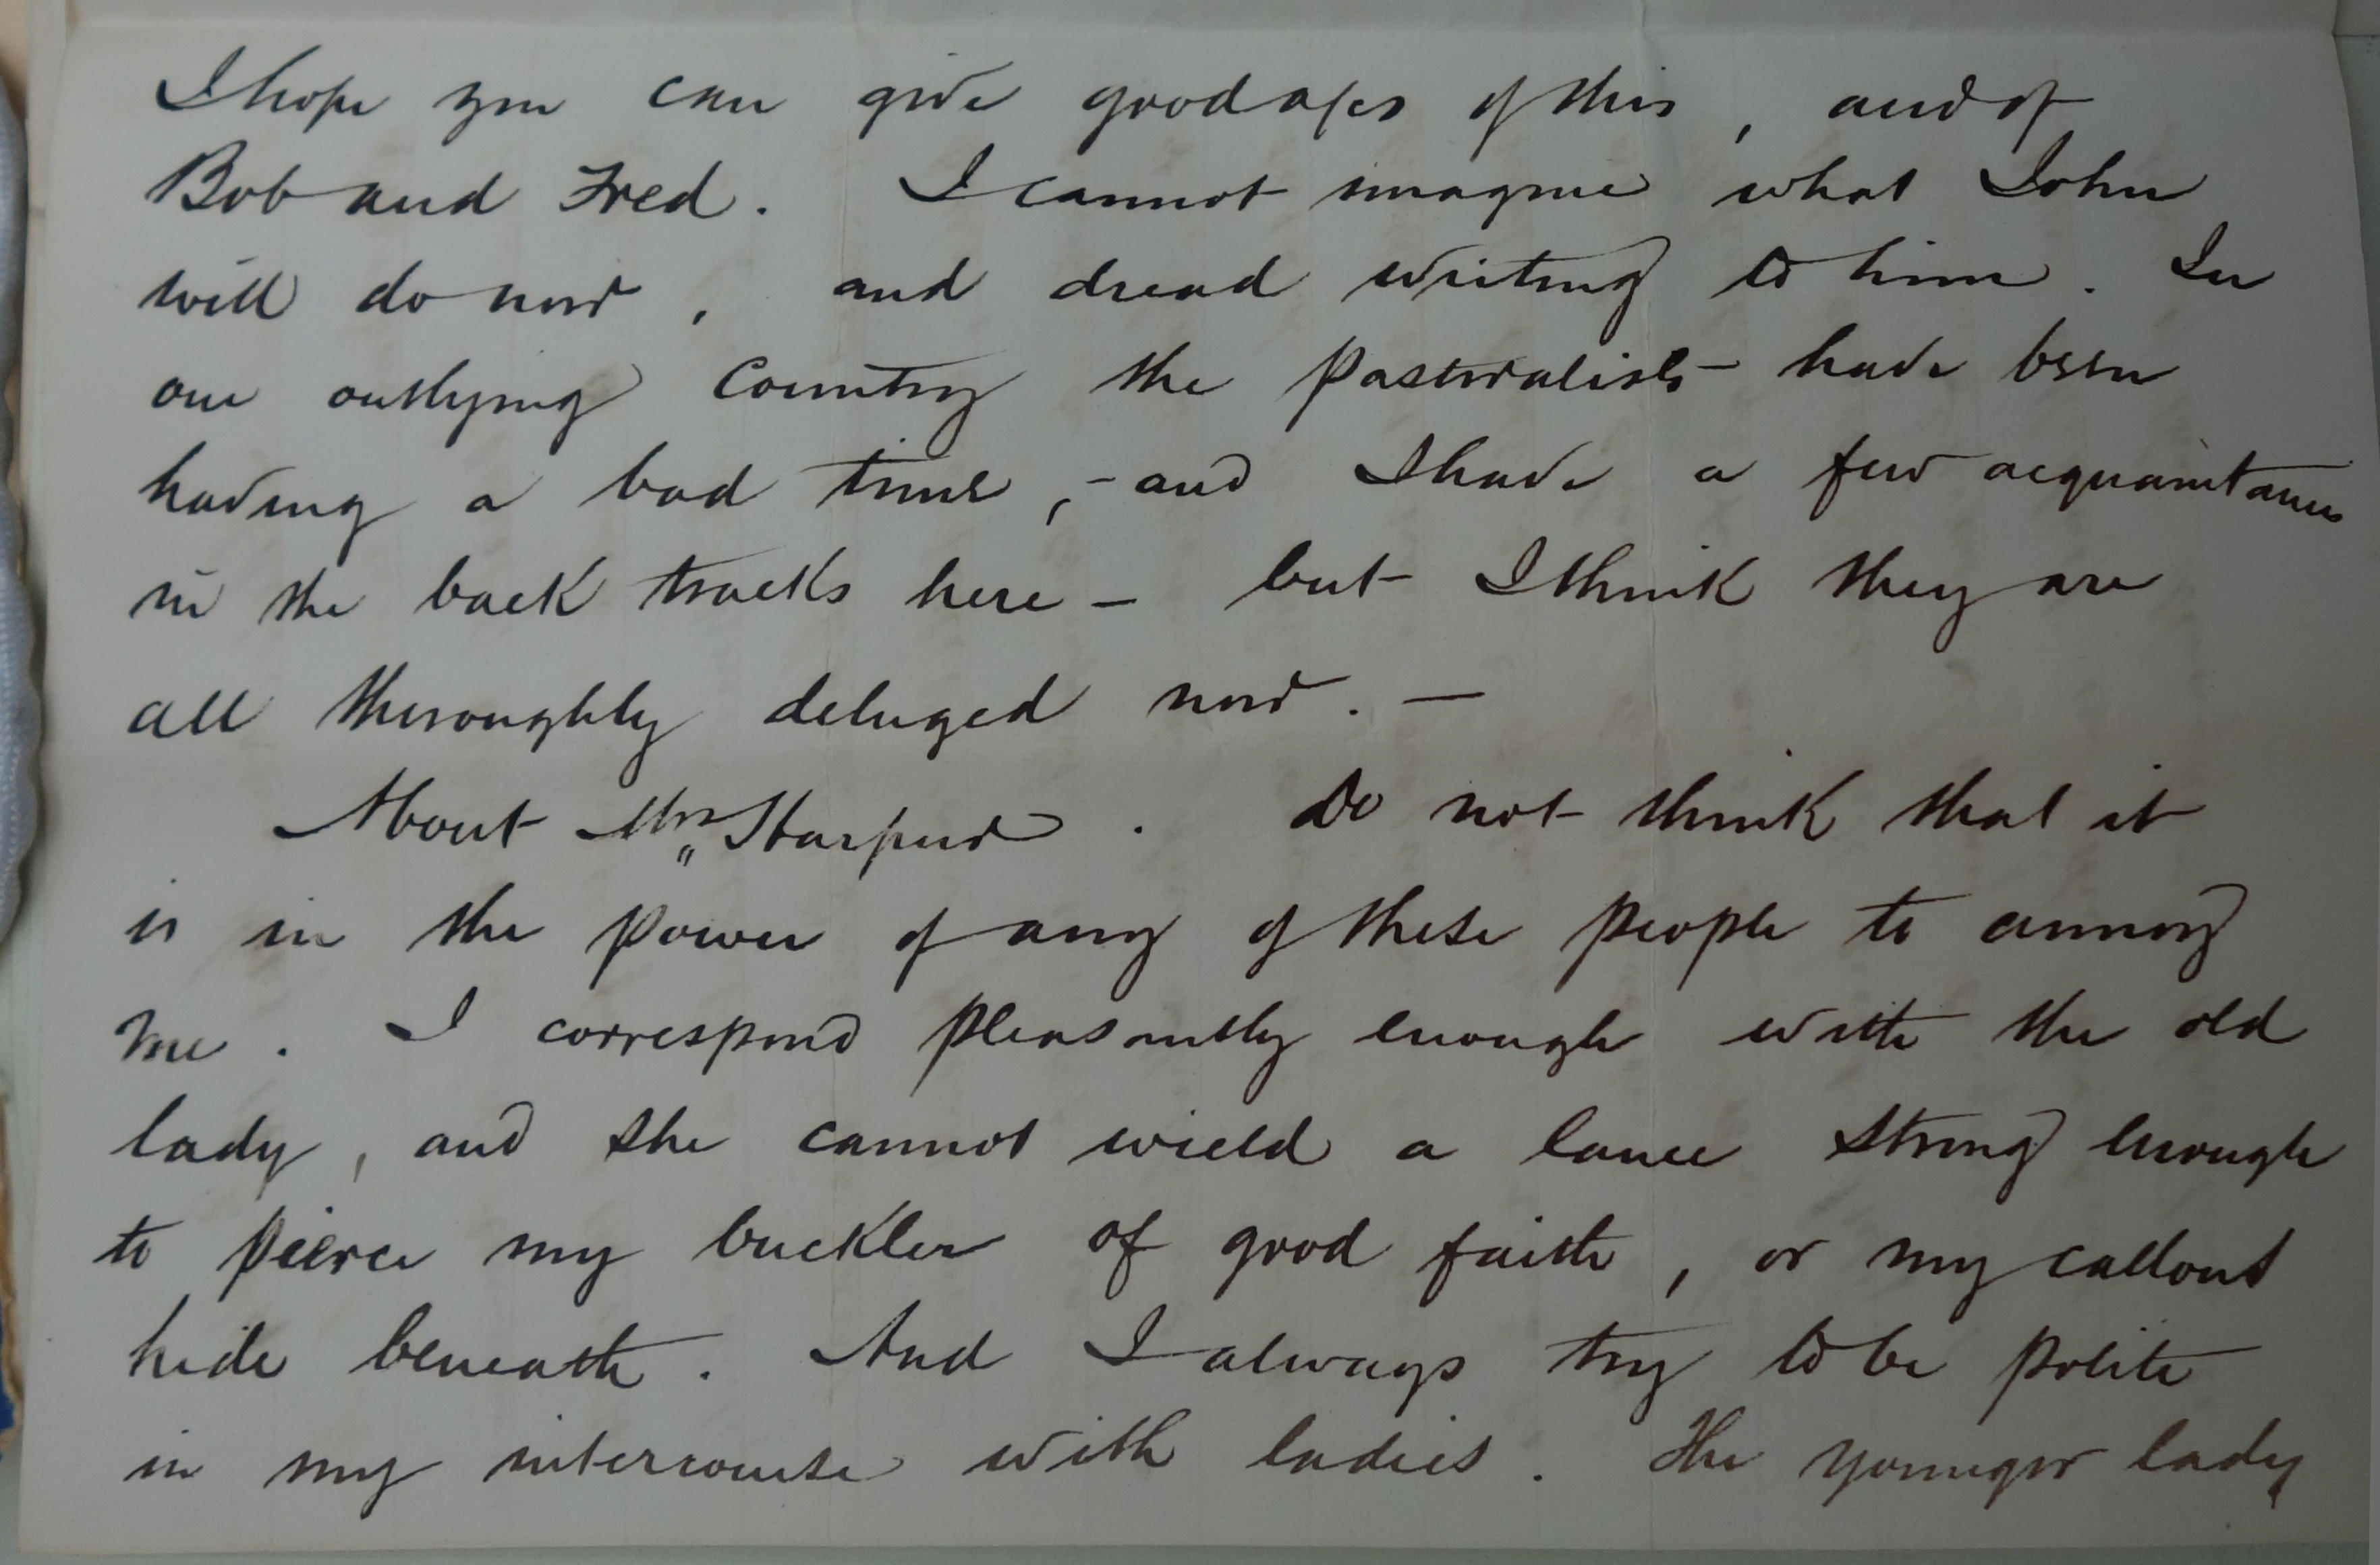 I hope you can give good a/cs of this, and of
Bob and Fred. I cannot imagine what John
will do now, and dread writing to him. In
our outlying country the pastoralists have been
having a bad time, - and I have a few acquaintances
in the back tracks here - but I think they are
all thoroughly deluged now. -
About Mrs Harpur. Do not think that it
is in the power of any of these people to annoy
me. I correspond pleasantly enough with the old
lady, and she cannot wield a lance strong enough
to pierce my buckler of good faith, or my callous
hide beneath. And I always try to be polite
in my intercourse with ladies. The younger lady